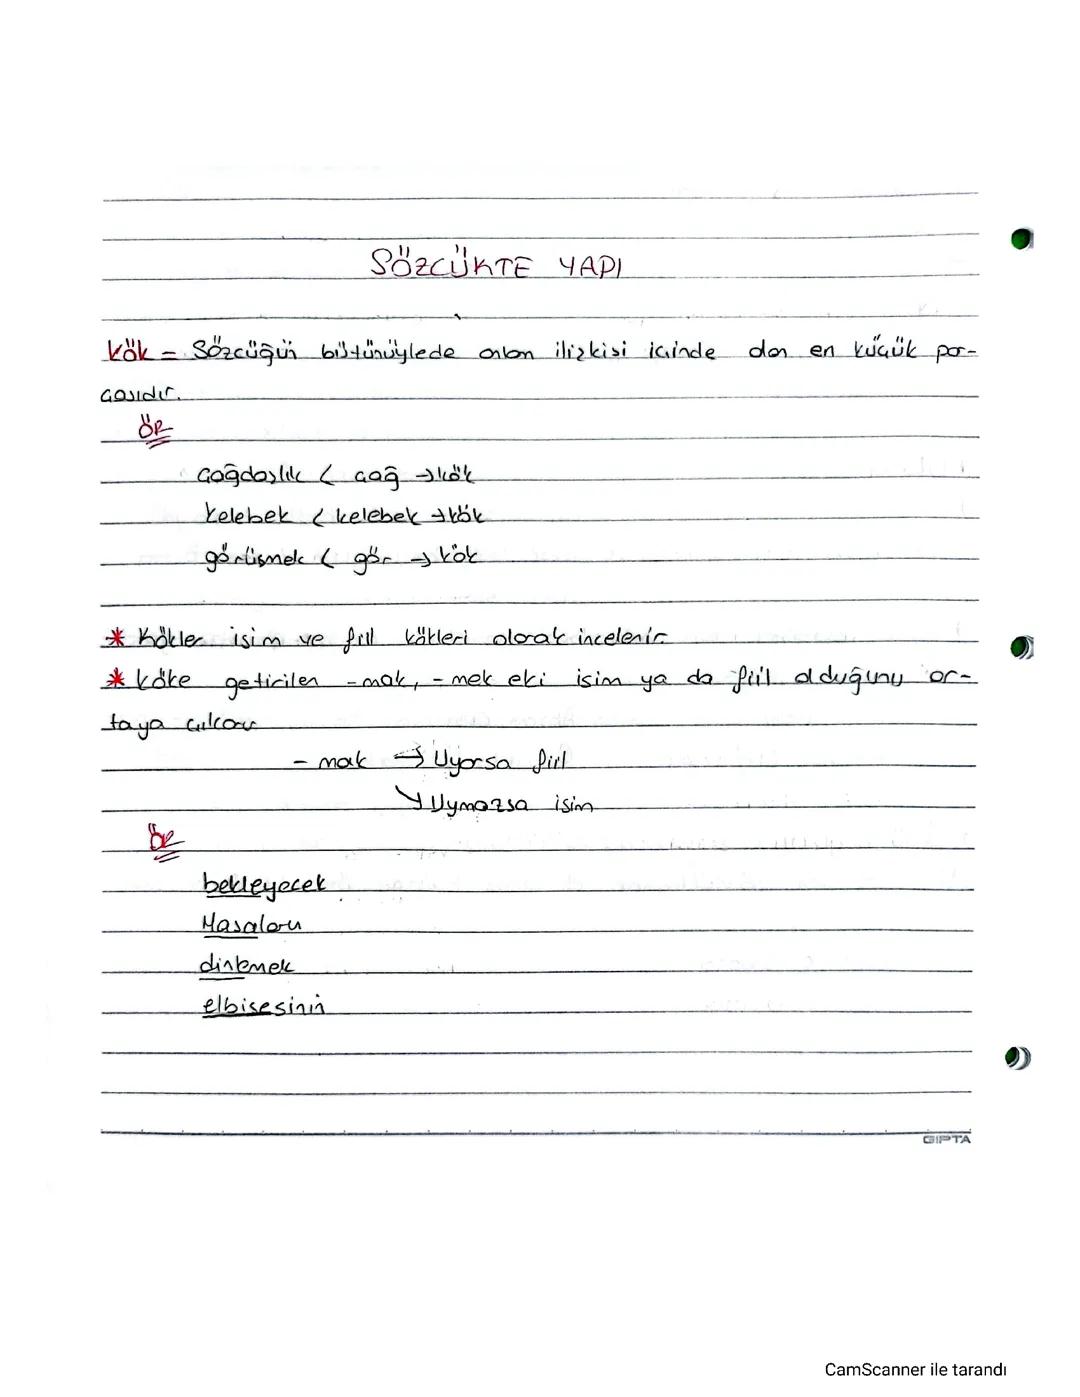 SÖZCÜKTE YAPI
kök = Sözcüğün bütünüylede anlam ilişkisi içinde olan en küçük par-
çasıdır.
ÖR
çağdaşlık < çağ → kök
kelebek < kelebek → kök
görüşmek < gör → kök
* Kökler isim ve fiil kökleri olarak incelenir
* köke getirilen -mak, -mek eki isim ya da fiil olduğunu or-
taya çıkarır
- mak → Uyarsa fiil
↘ Uymazsa isim
ÖR
bekleyecek
Masaları
dinlemek
elbisesinin
GIPTA
CamScanner ile tarandı